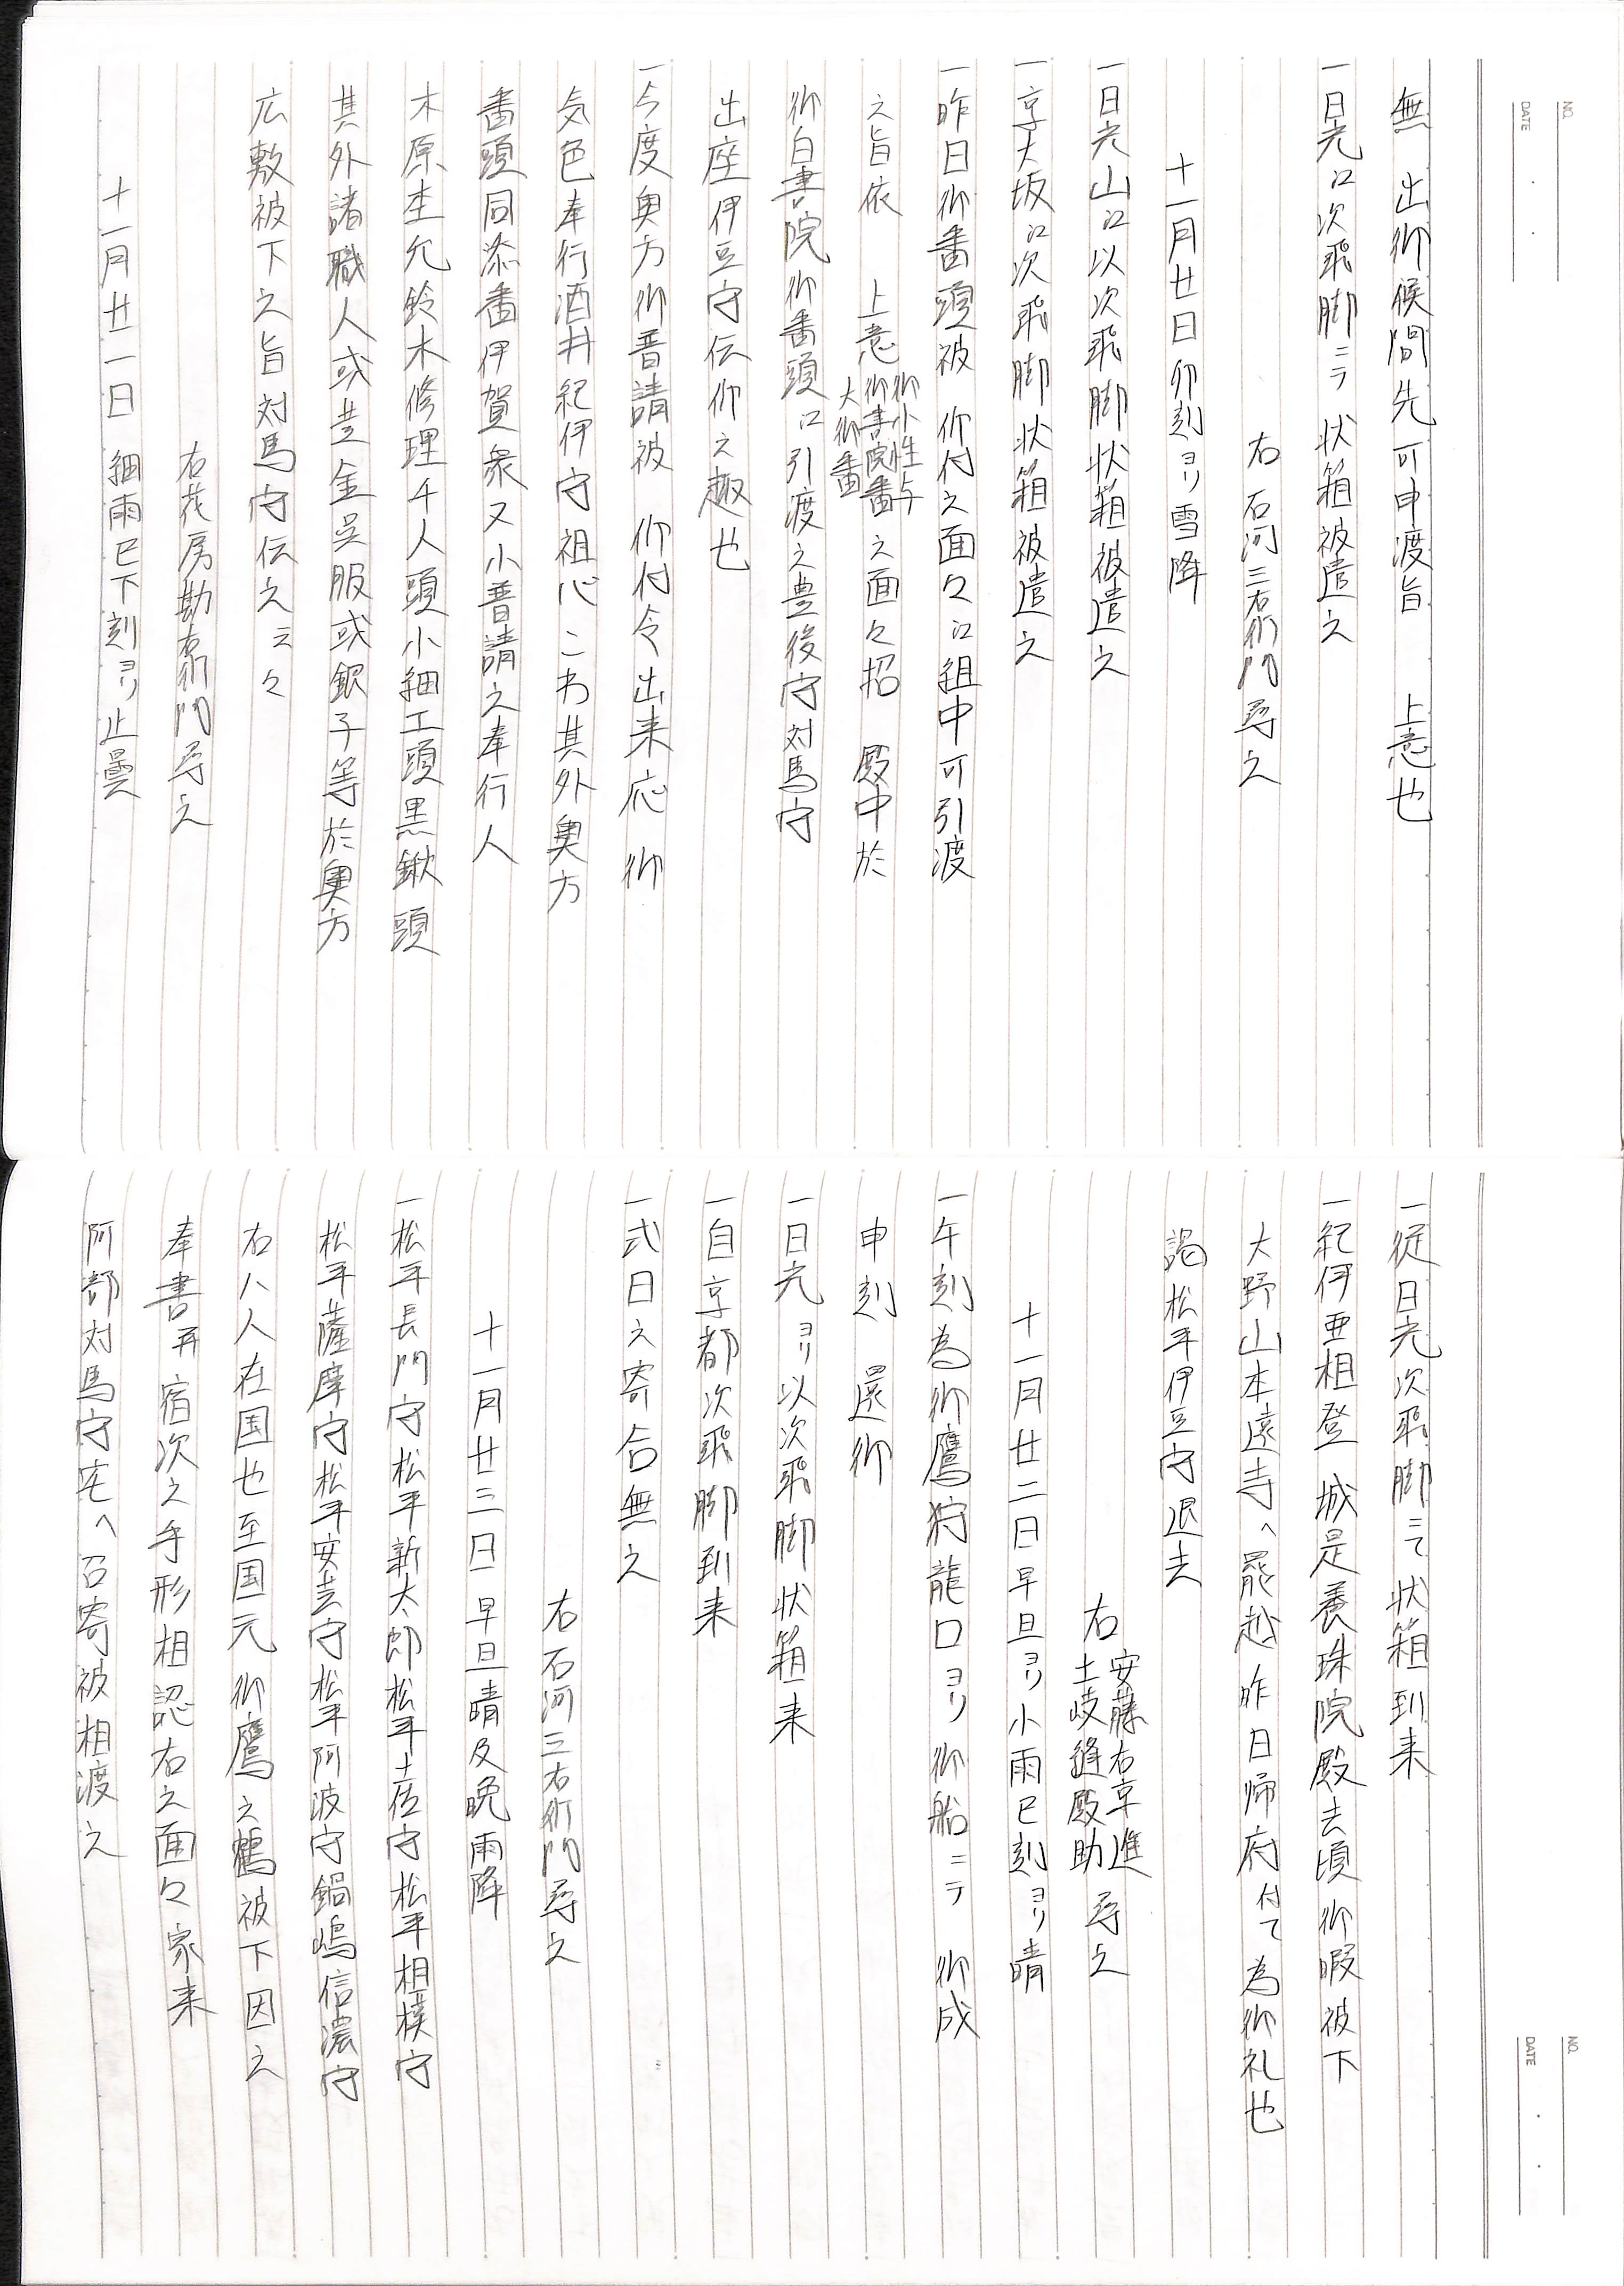 NO.
DATE
無　出御候間先可申渡旨　上意也
一日光江次飛脚ニテ状箱被遣之
右　石河三右衛門尋之
十一月廿日卯刻ヨリ雪降
一日光山江以次飛脚状箱被遣之
一京大坂江次飛脚状箱被遣之
一昨日御番頭被　仰付之面々江組中可引渡
之旨依　上意 御小性与 御書院番 大御番 之面々招　殿中於
御白書院御番頭江引渡之豊後守対馬守
出座伊豆守伝仰之趣也
一今度奥方御普請被　仰付令出来応　御
気色奉行酒井紀伊守祖心こわ其外奥方
番頭同添番伊賀衆又小普請之奉行人
木原杢允鈴木修理千人頭小細工頭黒鍬頭
其外諸職人或黄金呉服或銀子等於奥方
広敷被下之旨対馬守伝之云々
右花房勘右衛門尋之
十一月廿一日　細雨巳下刻ヨリ止曇
NO.
DATE
一従日光次飛脚ニて状箱到来
一紀伊亜相登　城是養珠院殿去頃御暇被下
大野山本遠寺へ罷越昨日帰府付て為御礼也
謁松平伊豆守退去
右 安藤右京進 土岐縫殿助 尋之
十一月廿二日早旦ヨリ小雨巳刻ヨリ晴
一午刻為御鷹狩龍口ヨリ御船ニテ　御成
申刻　還御
一日光ヨリ以次飛脚状箱来
一自京都次飛脚到来
一式日之寄合無之
右石河三右衛門尋之
十一月廿三日　早旦晴及晩雨降
一松平長門守松平新太郎松平土佐守松平相模守
松平薩摩守松平安芸守松平阿波守鍋嶋信濃守
右八人在国也至国元御鷹之鶴被下因之
奉書并宿次之手形相認右之面々家来
阿部対馬守宅へ召寄被相渡之